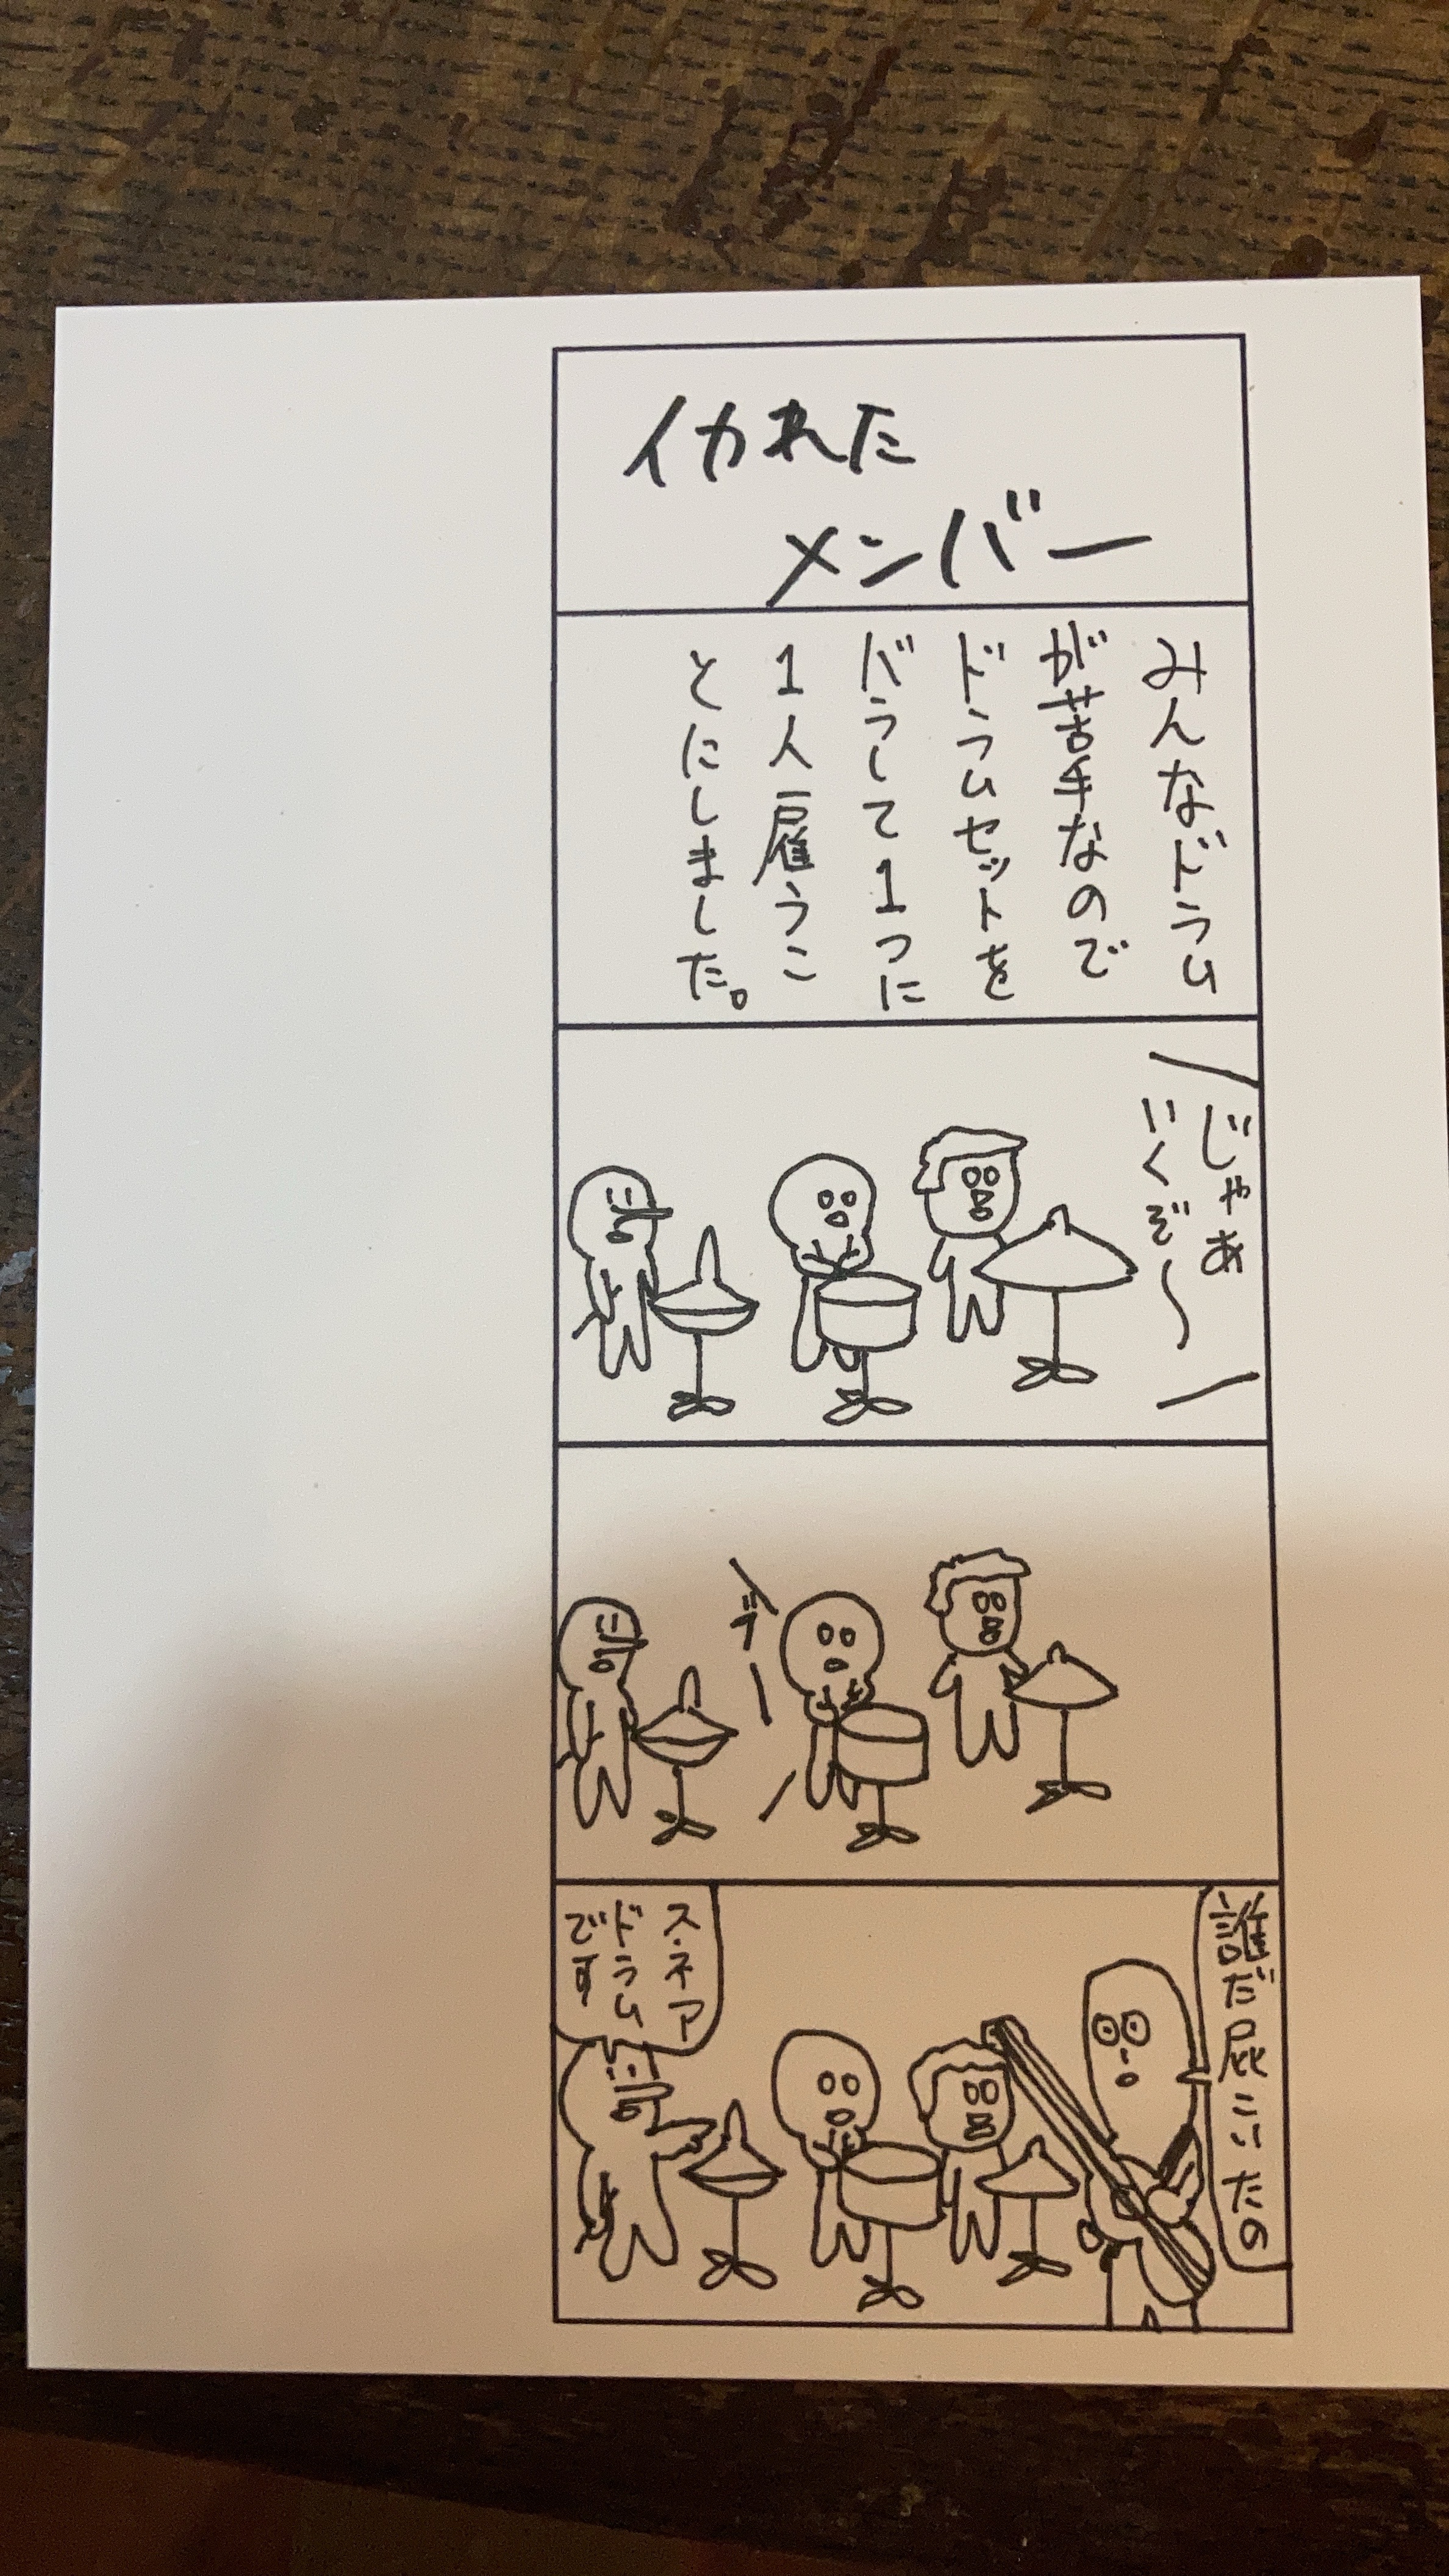 イカれた
メンバー
みんなドラム
が苦手なので
ドラムセットを
バラして1つに
1人雇うこ
とにしました。
じゃあ
いくぞ〜
ブー
誰だ屁こいたの
スネア
ドラム
です